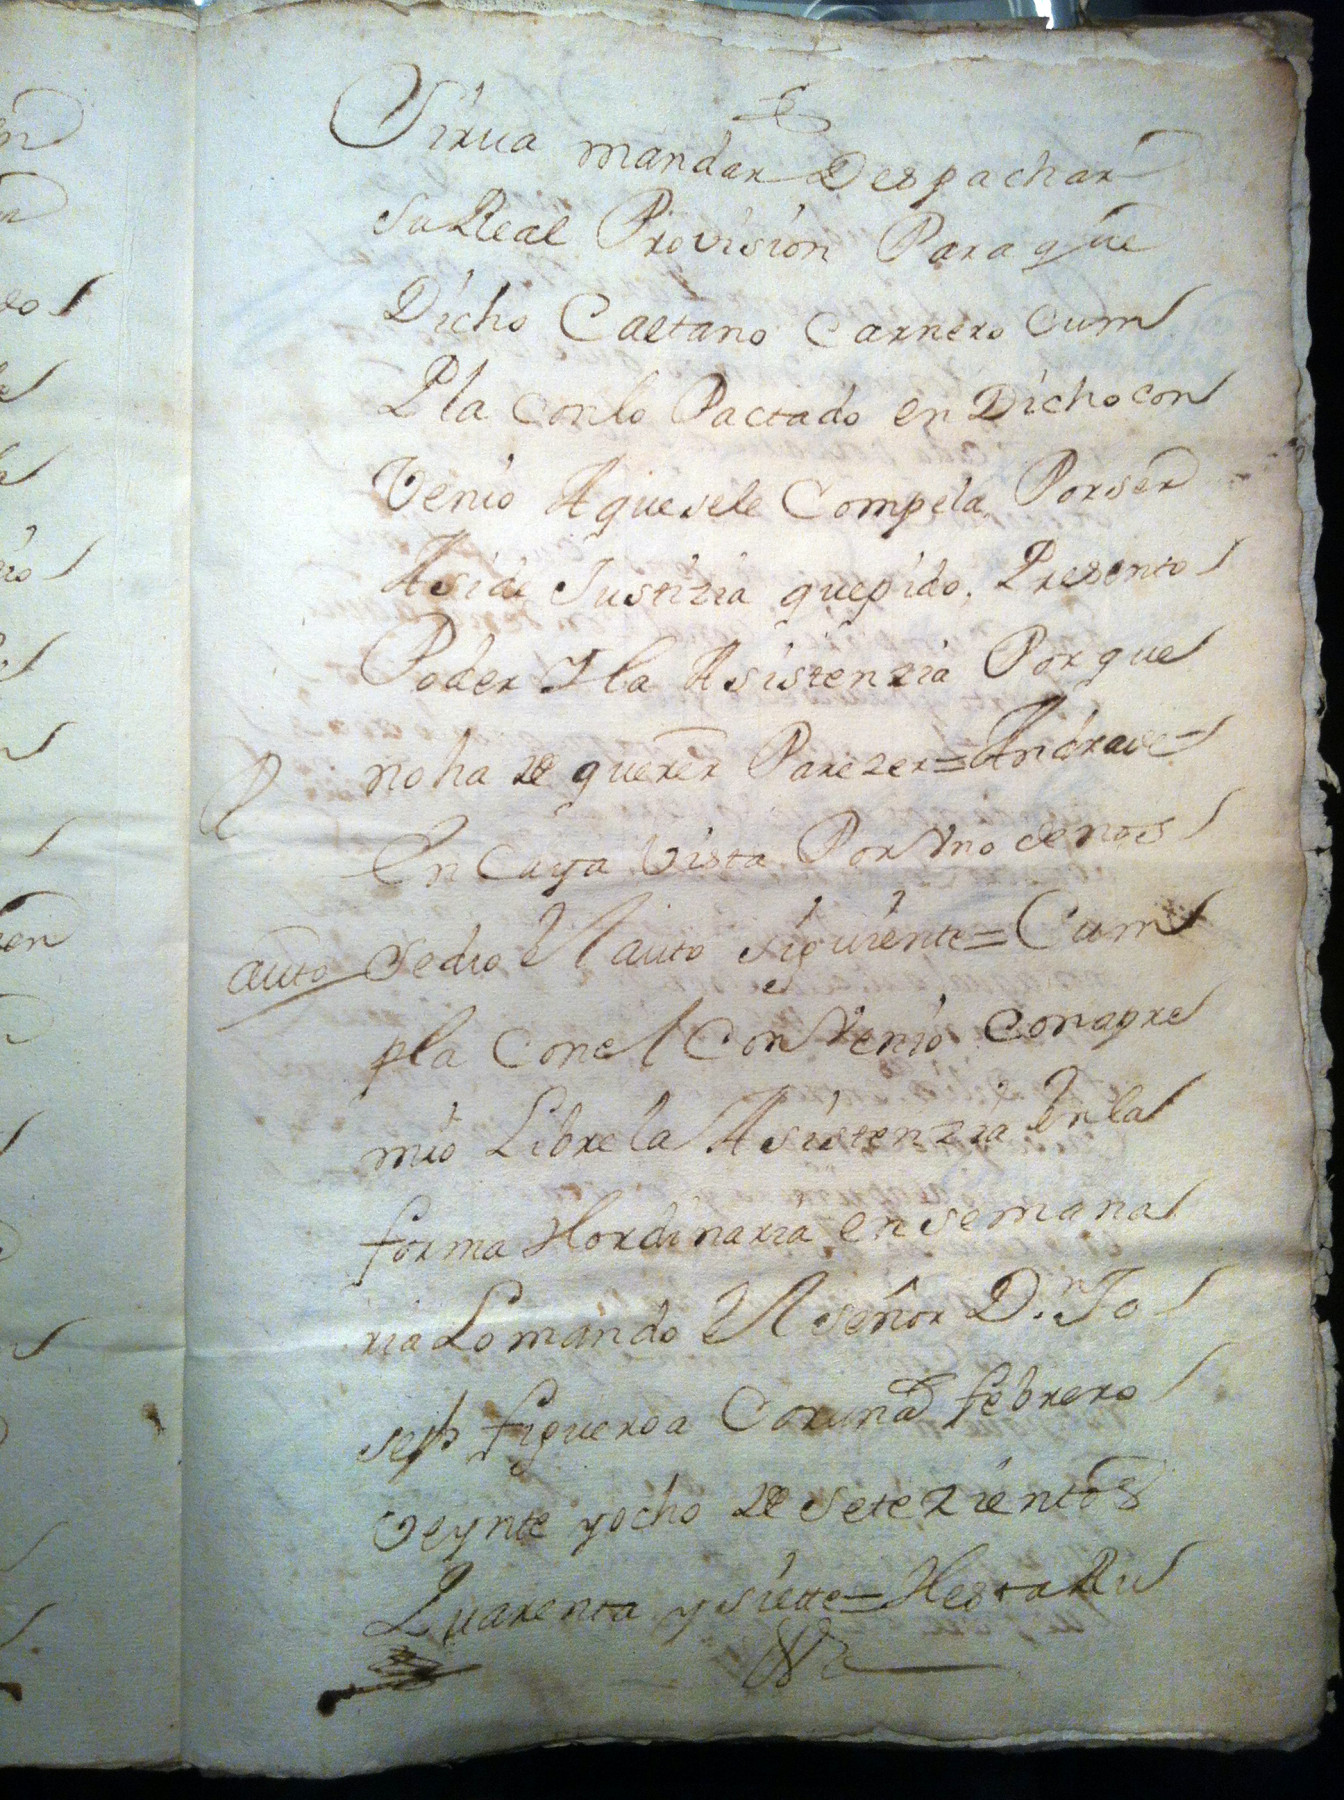 Sirua mandar Despachar
Su Real Provision Para que
Dicho Caetano Carnero Cum
Pla con lo Pactado en Dicho con
Venio A que sele Compela Por ser
Asi de Justizia que pido, Presento
Poder Y la Asistenzia Por que
no ha de querer Parezer = Andrade =
En Cuya Vista Por Vno de nos
auto Se dio El auto siguiente = Cum
pla con el Convenio con apre
mio Libre la Asistenzia En la
forma Hordinaria en semana
ria Lo mando El señor D.n Jo
seph figueroa Coruña febrero
Veynte y ocho de setezientos
Quarenta y siette = Hesta Ru